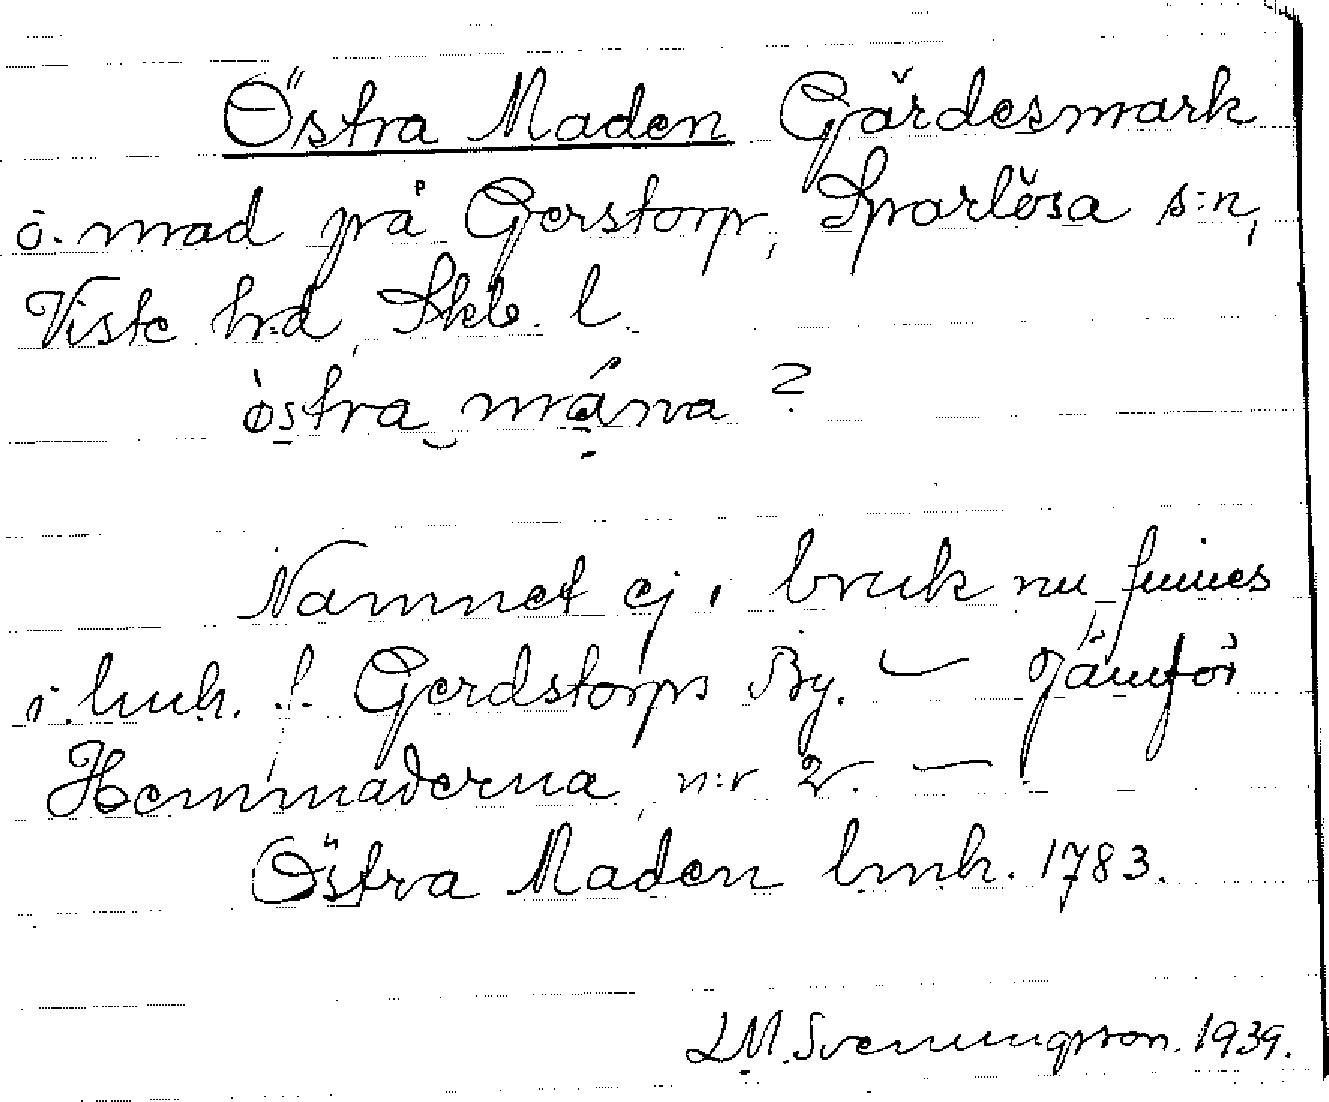 Östra Maden Gärdesmark
o. mad på Gerstorp, Sparlösa s:n,
Viste h:d, Skb. l.
òstra mána ?
Namnet ej i bruk nu, finnes
i lmh. f. Gerdstorps By. — Jämför
Hemmaderna, n:r 2. —
Östra Maden lmh. 1783.
L.M. Svenungsson. 1939.